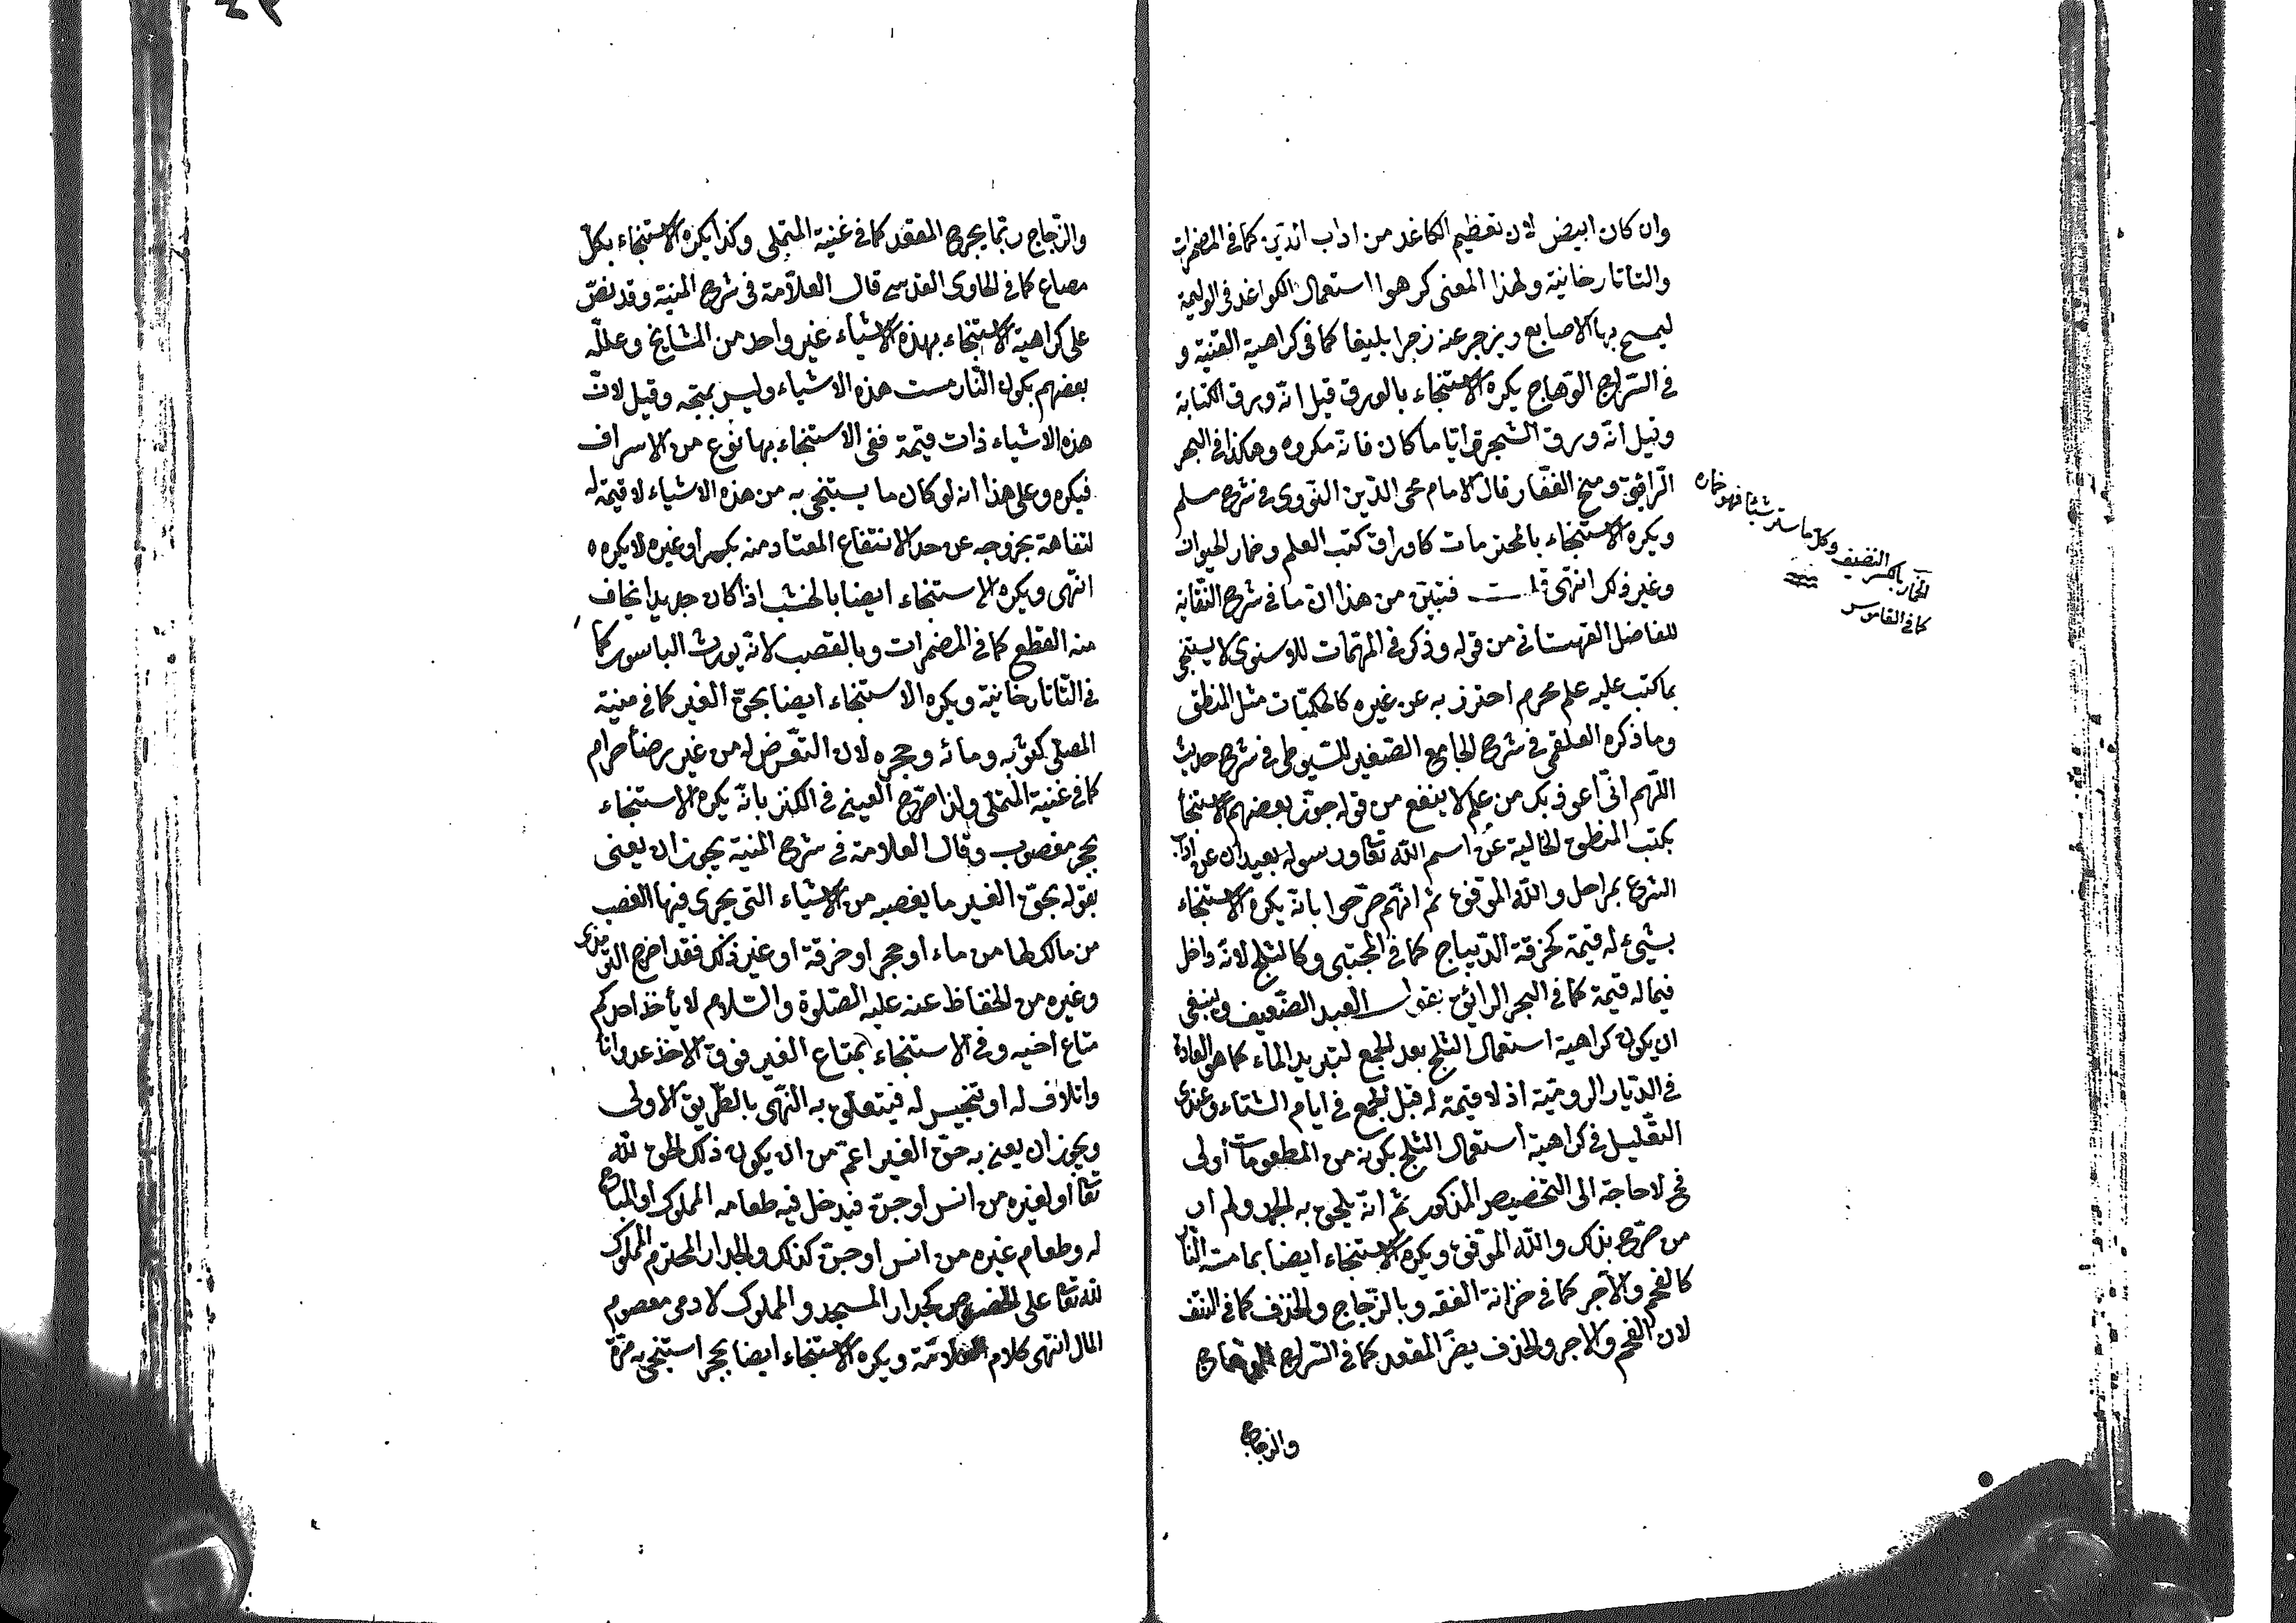 وان كان ابيض لان تعظيم الكاغد من اداب الدين كما في المضمرات
والتاتارخانية ولهذا المعنى كرهوا استعمال الكواغد في الوليمة
ليمسح بها الاصابع ويزجر عنه زجرا بليغا كما في كراهية القنية و
في السراج الوهاج يكره الاستنجاء بالورق قيل انه ورق الكتابة
وقيل انه ورق الشجر واياما كان فانه مكروه وهكذا في البحر
الرائق ومنح الغفار قال الامام محى الدين النووى في شرح مسلم
ويكره الاستنجاء بالمحترمات كاوراق كتب العلم وخمار الحيوان
وغير ذلك انتهى قلت فتبين من هذا ان ما في شرح النقاية
للفاضل القهستاني من قوله وذكر في المهمات للاسنوى لا يستنجى
بما كتب عليه علم محرم احترز به عن غيره كالحكميات مثل المنطق
وما ذكره العلقمى في شرح الجامع الصغير للسيوطى في شرح حديث
اللهم انى اعوذ بك من علم لا ينفع من قوله جوز بعضهم الاستنجأ
بكتب المنطق الخالية عن اسم الله تعا ورسوله بعيدان عن اداب
الشرع بمراحل والله الموفق ثم انهم صرحوا بانه يكره الاستنجاء
بشىء له قيمة كخرقة الديباج كما في المجتبى وكالثلج لانه داخل
فيما له قيمة كما في البحر الرائق يقول العبد الضعيف وينبغى
ان يكون كراهية استعمال الثلج بعد الجمع لتبريد الماء كما هو العادة
في الديار الرومية اذ لا قيمة له قبل الجمع في ايام الشتاء وعندى
التعليل في كراهية استعمال الثلج بكونه من المطعومات أولى
فح لا حاجة الى التخصيص المذكور ثم انه يلحق به الجمد ولم ار
من صرح بذلك والله الموفق ويكره الاستنجاء ايضا بما مسته النار
كالفحم والآجر كما في خزانة الفقه وبالزجاج والخذف كما في النتف
لان الفحم والاجر والخذف يضر المقعد كما في السراج الوهاج
والزجاج
الخمار بالكسر النصيف وكل ما ستر شيئا فهو خماره
كما في القاموس
والزجاج ربما يجرح المقعد كما في غنية المتملى وكذا يكره الاستنجاء بكل
مصاغ كما في الحاوى القدسى قال العلامة في شرح المنية وقد نص
على كراهية الاستنجاء بهذه الاشياء غير واحد من المشايخ وعلله
بعضهم بكون النار مست هذه الاشياء وليس بمتجه وقيل لان
هذه الاشياء ذات قيمة ففى الاستنجاء بها نوع من الاسراف
فيكره وعلى هذا انه لو كان ما يستنجى به من هذه الاشياء لا قيمة له
لتفاهة بخروجه عن حد الانتفاع المعتاد منه بكسر او غيره لا يكره
انتهى ويكره الاستنجاء ايضا بالخشب اذا كان جديدا يخاف
منه القطع كما في المضمرات وبالقصب لانه يورث الباسور كما
في التاتارخانية ويكره الاستنجاء ايضا بحق الغير كما في منية
المصلى كثوبه ومائه وحجره لان التعرض له من غير رضأ حرام
كما في غنية المتملى ولذا صرح العينى في الكنز بانه يكره الاستنجاء
بحجر مغصوب وقال العلامة في شرح المنية يجوز ان يعنى
بقوله بحق الغير ما يغصبه من الاشياء التى يجرى فيها الغصب
من مالك لها من ماء أو حجر او خرقة او غير ذلك فقد اخرج الترمذى
وغيره من الحفاظ عنه عليه الصلوة والسلام لا يأخذ احدكم
متاع أخيه وفي الاستنجاء بمتاع الغير فوق الاخذ عدوانا
واتلاف له او تنجيس له فيتعلق به النهى بالطريق الاولى
ويجوز ان يعنى به حق الغير اعم من ان يكون ذلك الحق لله
تعا أو لغيره من انس أو جن فيدخل فيه طعامه المملوك او المباح
له وطعام غيره من انس أو جن كذلك والجدار المحترم المملوك
لله تعا على الخصوص كجدار المسجد والمملوك لادمى معصوم
المال انتهى كلام العلامة ويكره الاستنجاء ايضا بحجر استنجى به مرة